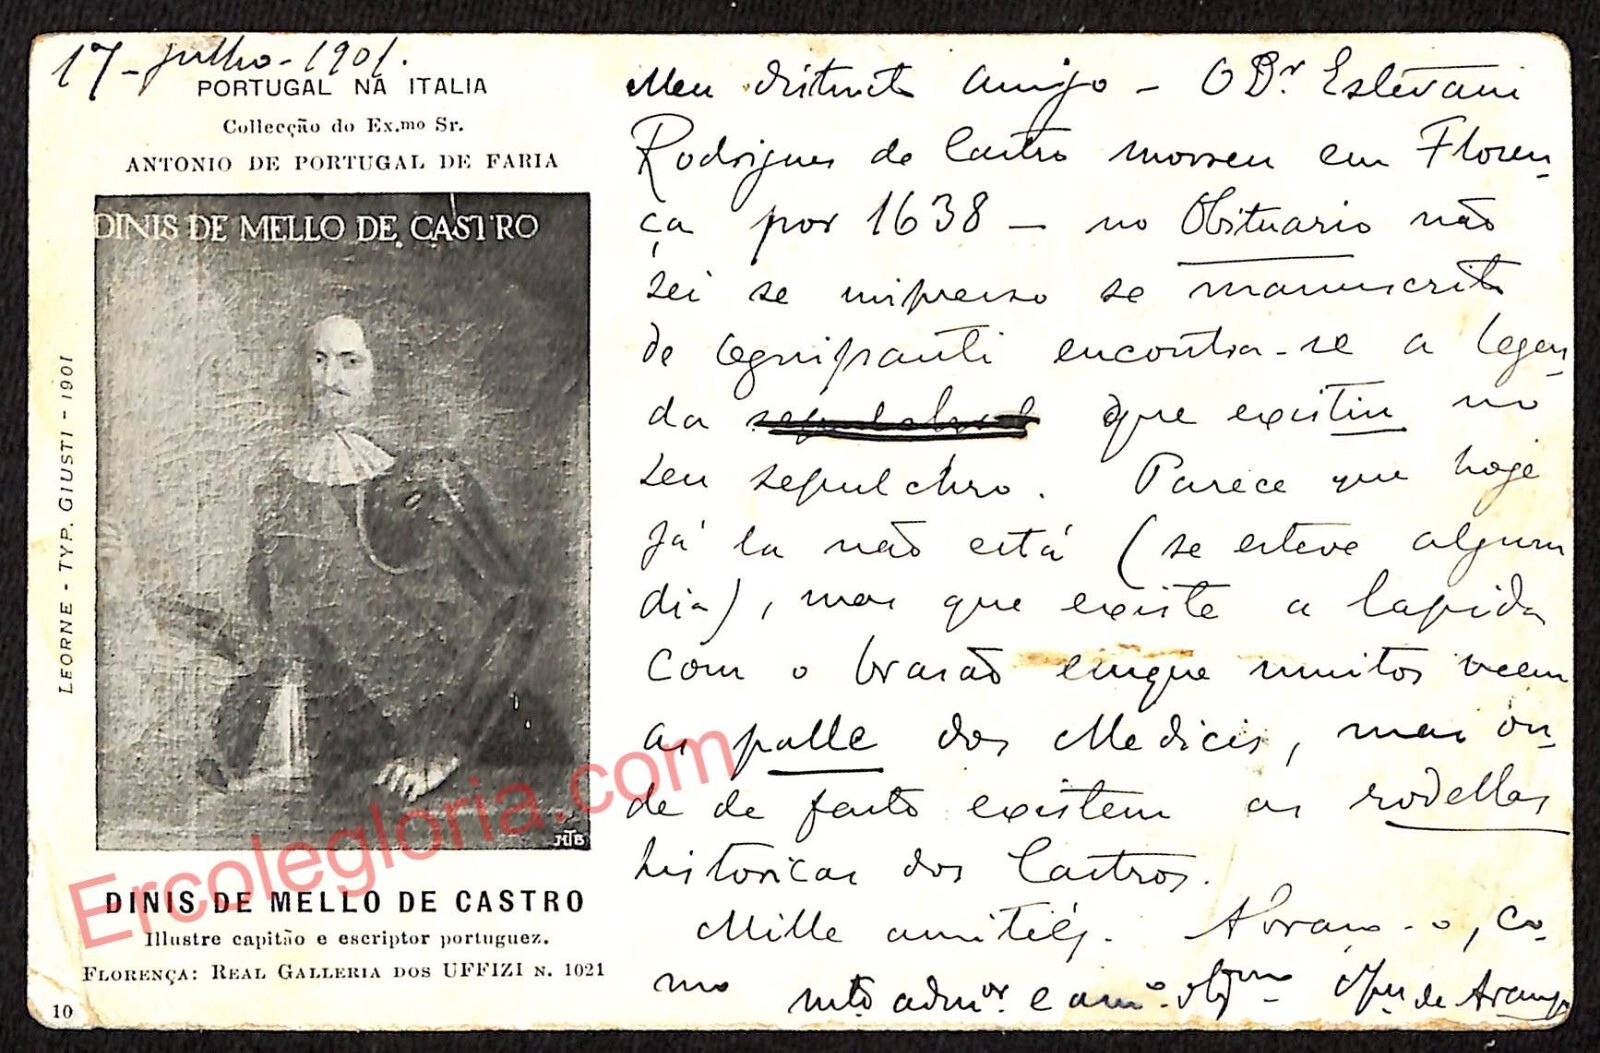 17-Julho-1901.
PORTUGAL NA ITALIA
Collecção do Ex.mo Sr.
ANTONIO DE PORTUGAL DE FARIA
DINIS DE MELLO DE CASTRO
MTB
LEORNE - TYP. GIUSTI - 1901
DINIS DE MELLO DE CASTRO
Illustre capitão e escriptor portuguez.
FLORENÇA: REAL GALLERIA DOS UFFIZI N. 1021
10
Meu distincto amigo - O Dr Estevam
Rodrigues de Castro morreu em Floren-
ça por 1638 - no Obituario não
sei se impresso se manuscrito
de encontra-se a legen-
da sepulchral que existiu no
seu sepulchro. Parece que hoje
já la não está (se esteve algum
dia), mas que existe a lapida
com o brasão emque muitos veem
as palle dos Medicis, mas on-
de de facto existem as rodellas
historicas dos Castros.
Mille amitiés. Abraça-o, co-
mo mto admor e amo obgmo
Ercolegloria.com